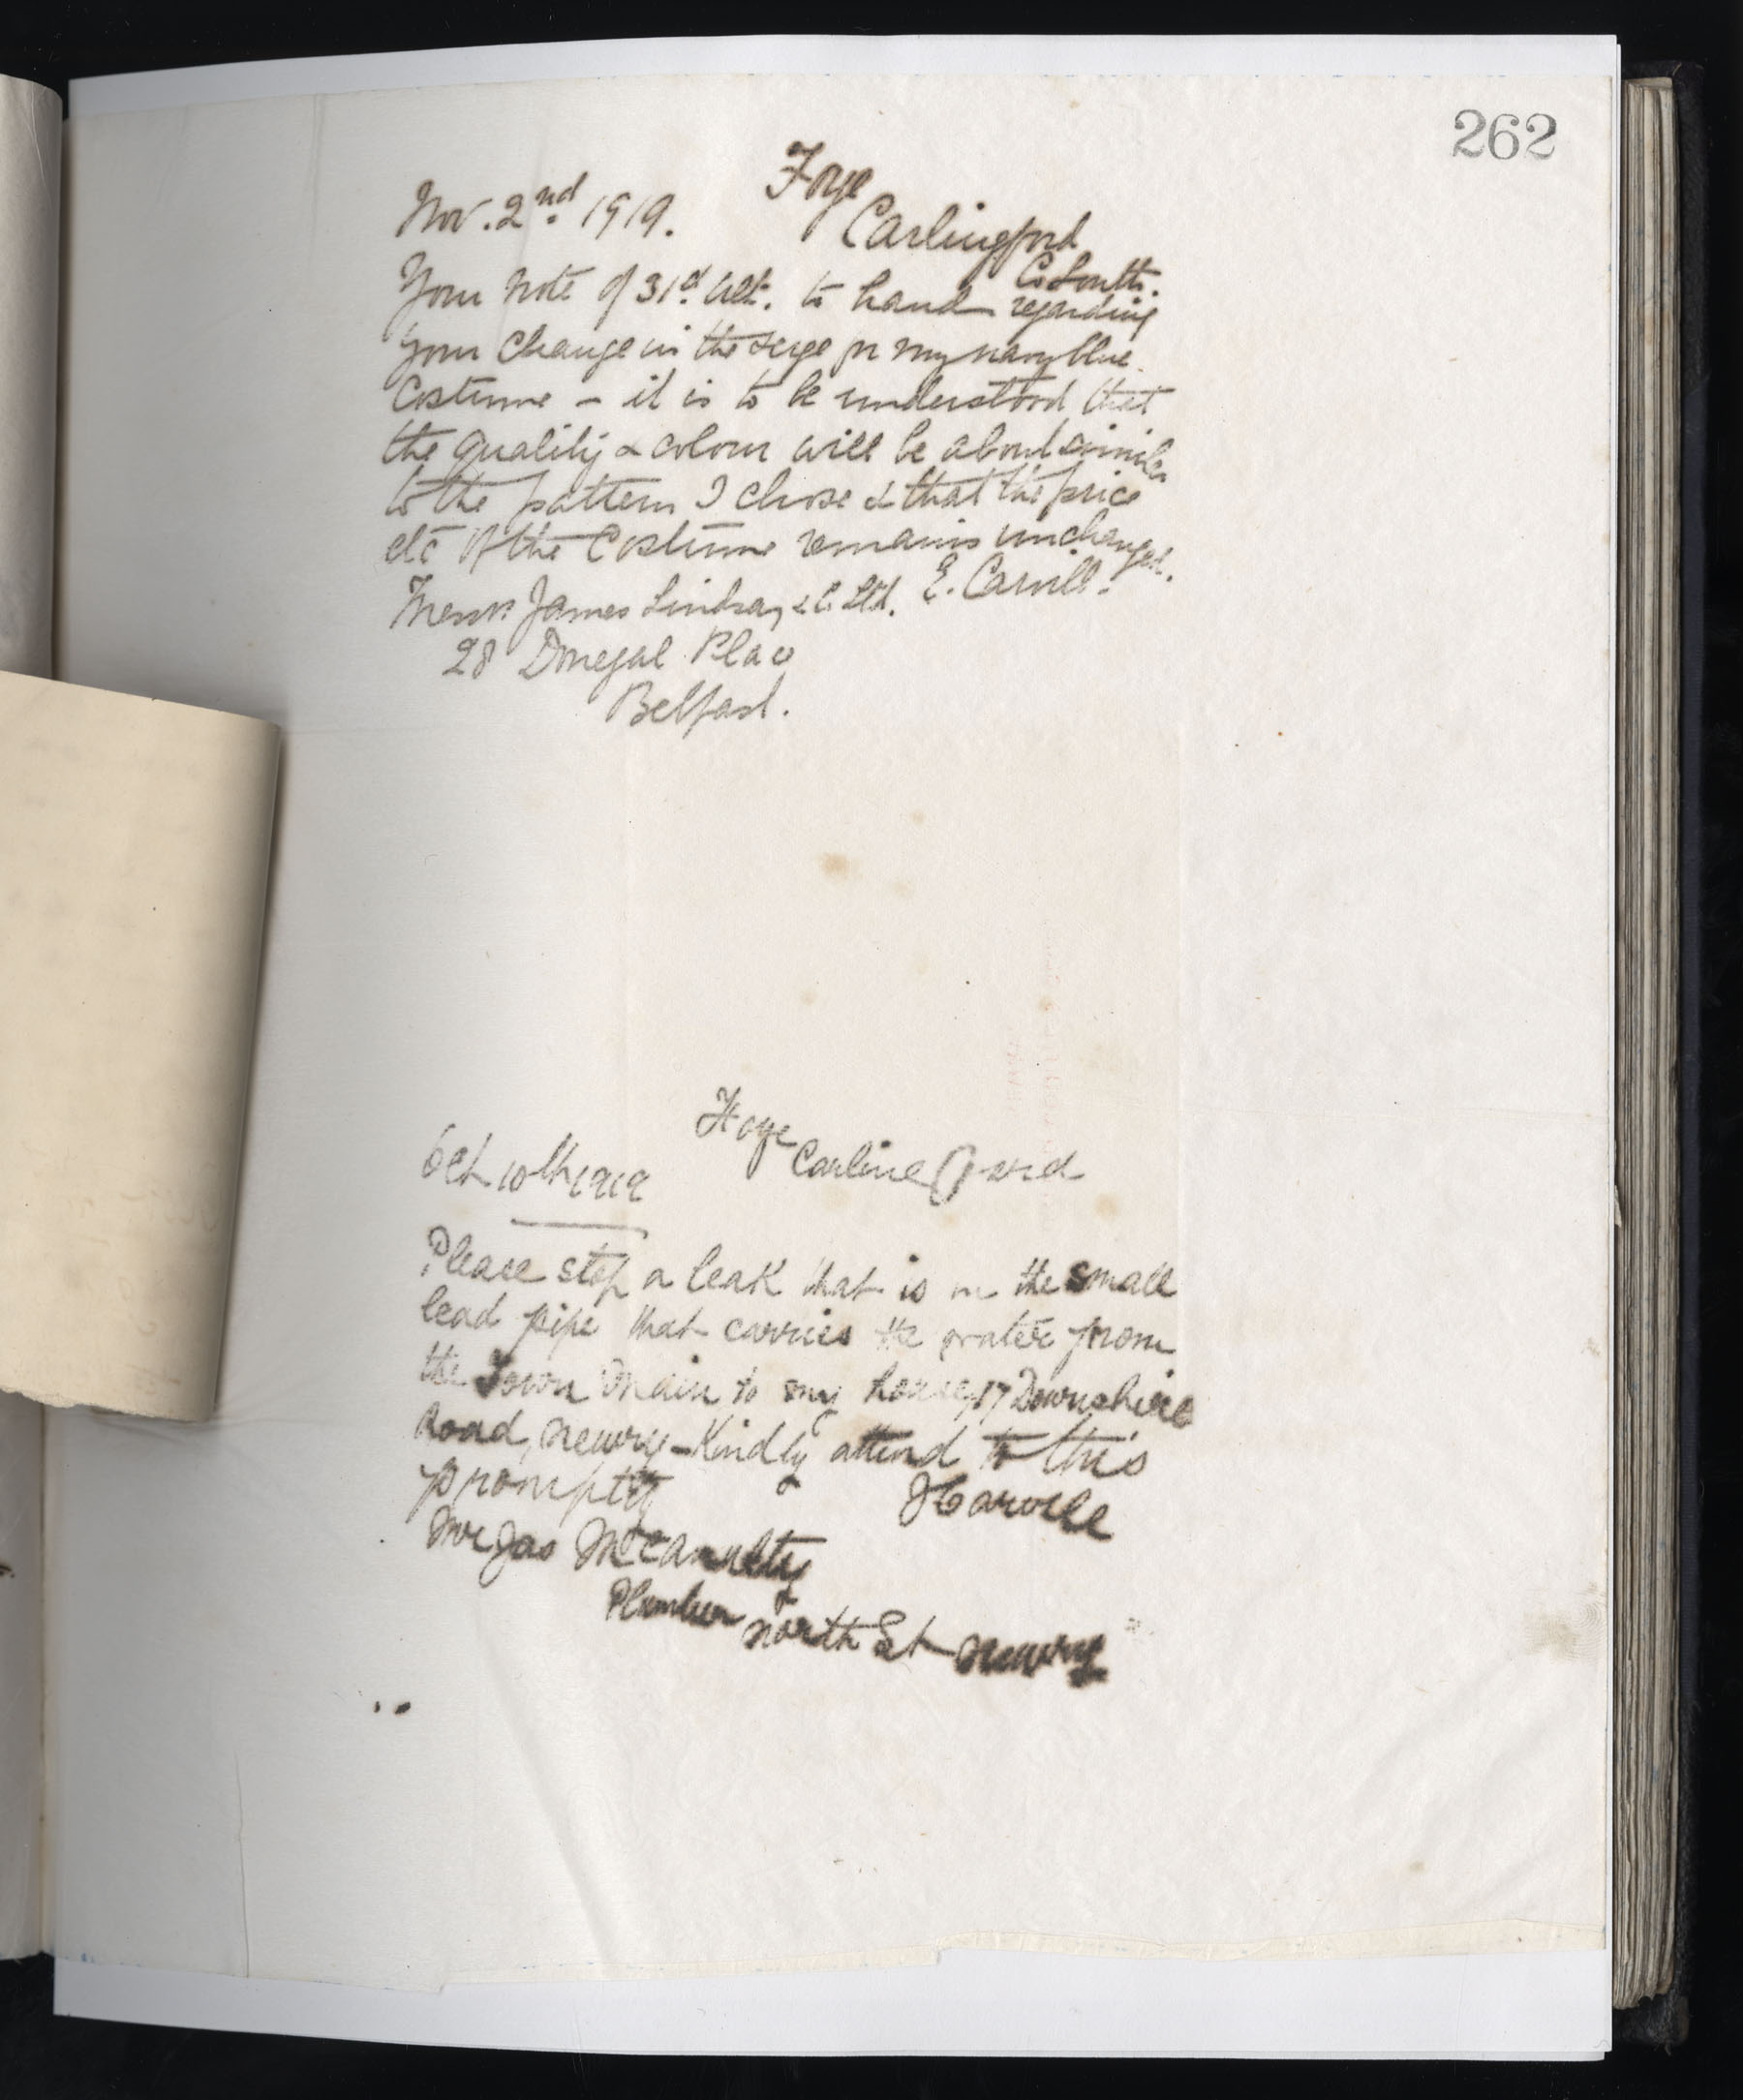 262
Foye
Nov. 2nd 1919.
Carlingford
Co Louth.
Your note of 31st Ult. to hand regarding
your change in the serge for my navy blue
Costume - it is to be understood that
the quality & colour will be about similar
to the pattern I chose & that the price
etc of the Costume remains unchanged.
Messrs James Lindsay & C. Ltd. E. Carvill.
28 Donegal Place
Belfast.
Foye
Oct 10th 1919
Carlingford
Please stop a leak that is in the small
lead pipe that carries the water from
the Town Main to my house, 17 Downshire
Road, Newry - Kindly attend to this
promptly
J Carvill
Mr Jas McAnulty
Plumber
North St Newry